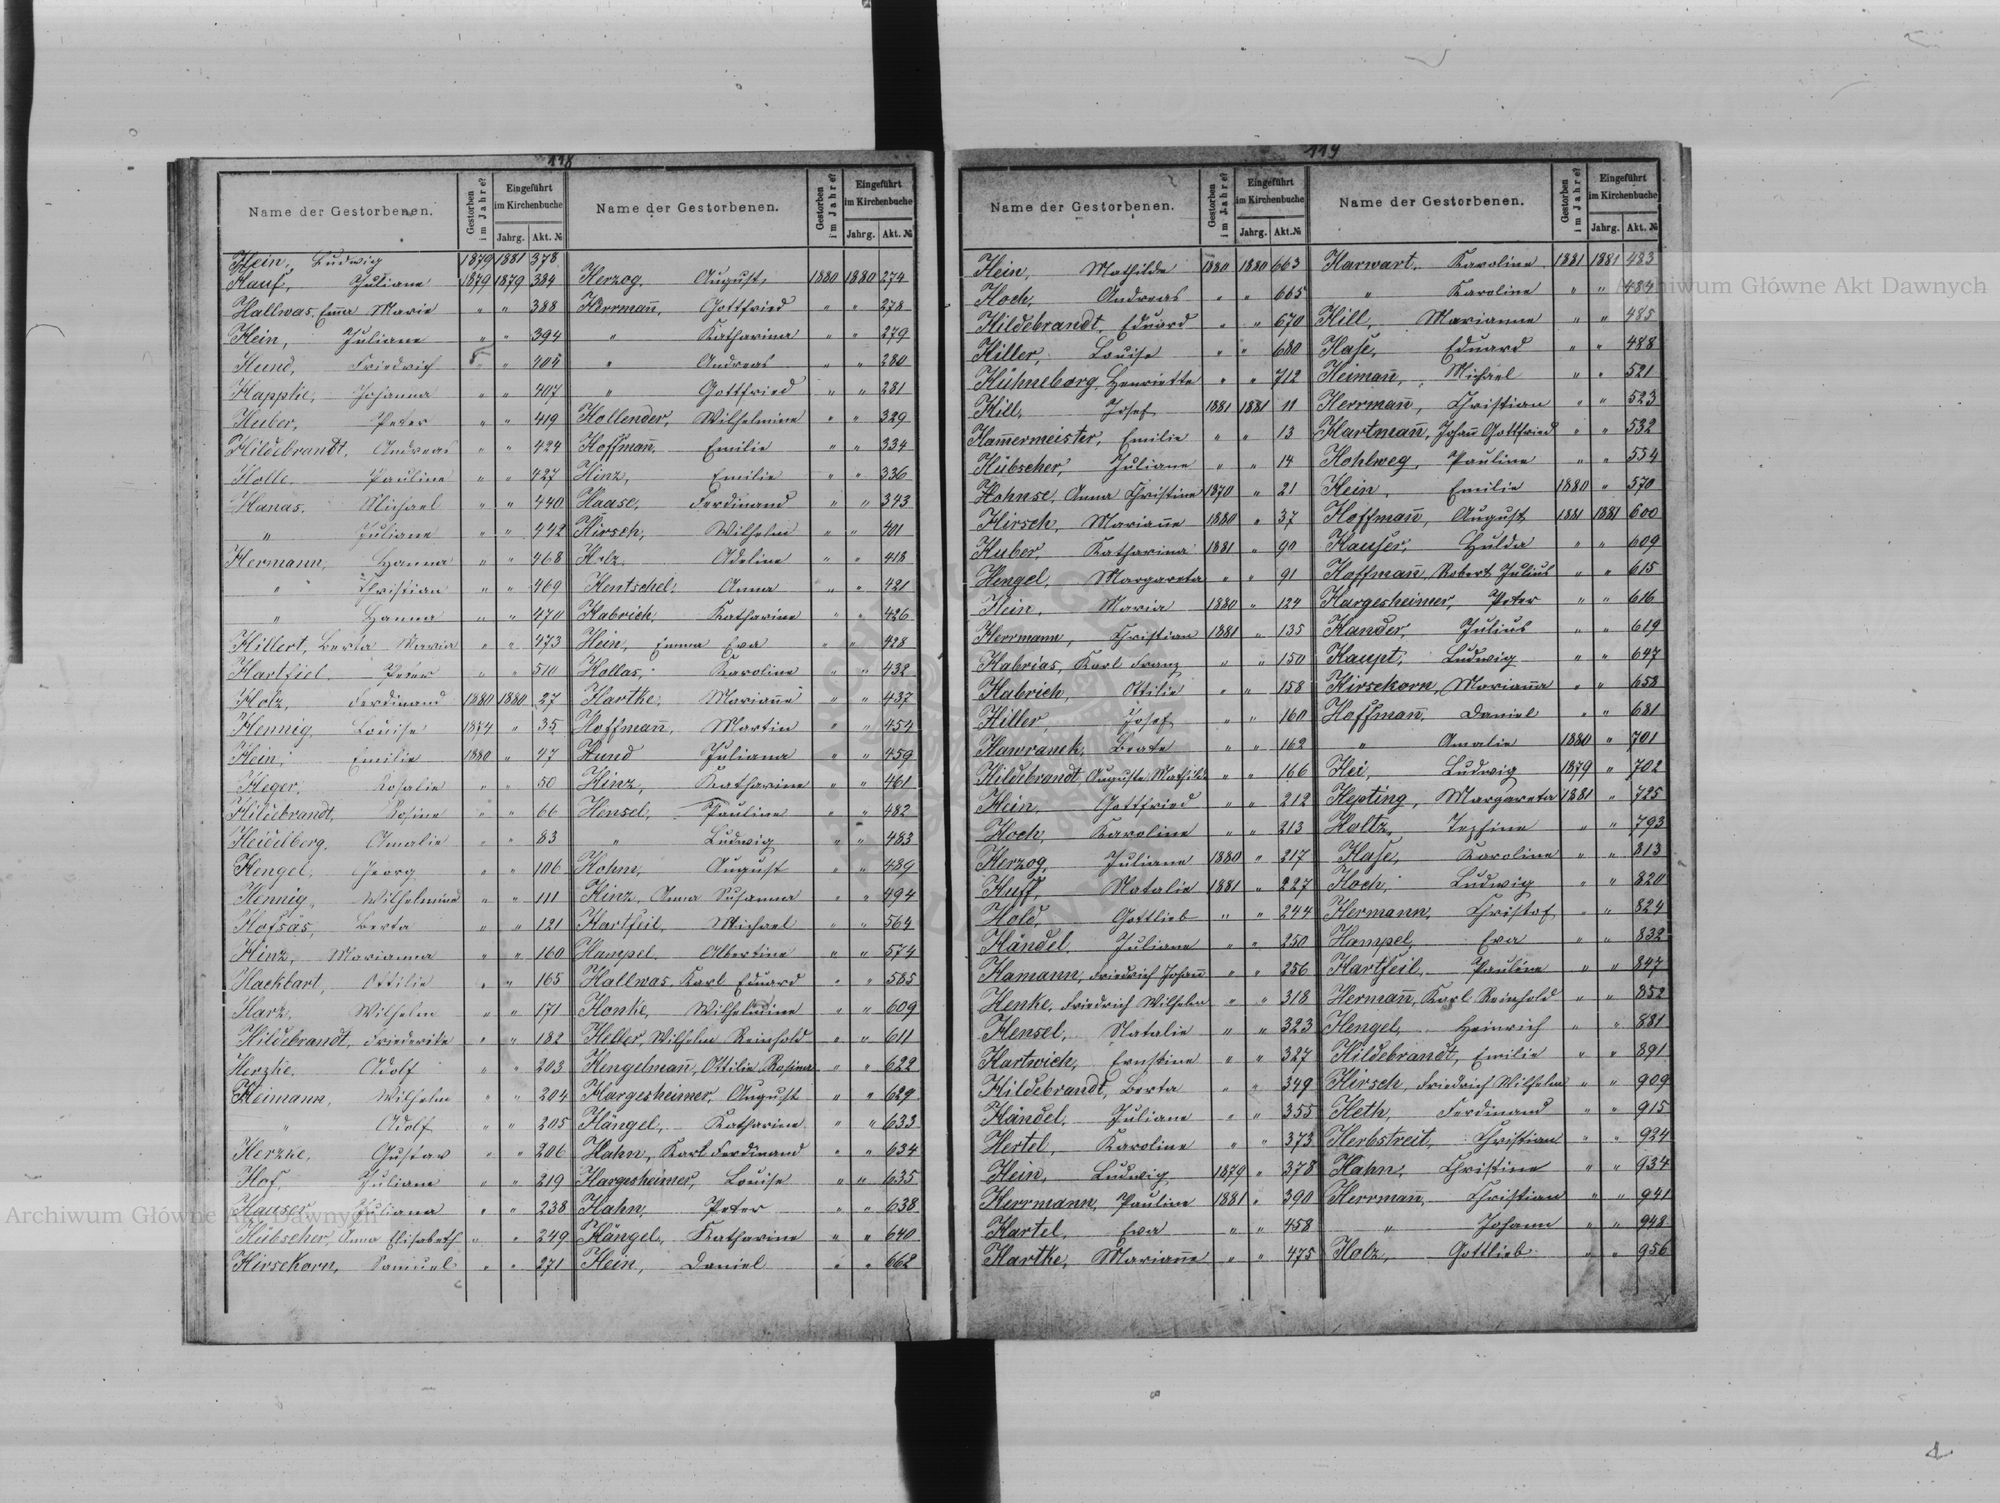 118
Name der Gestorbenen.
Gestorben im Jahre?
Eingeführt im Kirchenbuche
Jahrg. Akt. №
Hein, Ludwig 1879 1881 378
Hauf, Juliane 1879 1879 384
Hallwas, Emma Marie " " 388
Hein, Juliane " " 394
Hund, Friedrich " " 405
Happke, Johanna " " 407
Huber, Peter " " 419
Hildebrandt, Andreas " " 424
Holle Pauline " " 427
Hanas, Michael " " 440
" Juliane " " 442
Hermann, Hanna " " 468
" Christian " " 469
" Hanna " " 470
Hillert, Berta Maria " " 473
Hartfiel Peter " " 510
Holz, Ferdinand 1880 1880 27
Hennig, Louise 1874 " 35
Hein, Emilie 1880 " 47
Heger, Rosalie " " 50
Hildebrandt, Rosine " " 66
Heidelberg, Amalie " " 83
Hengel, Georg " " 106
Hennig, Wilhelmine " " 111
Hofsäs, Berta " " 121
Hinz, Marianna " " 160
Hackbart, Ottilie " " 165
Harz, Wilhelm " " 171
Hildebrandt, Friederike " " 182
Herzke, Adolf " " 203
Heimann, Wilhelm " " 204
" Adolf " " 205
Herzke, Gustav " " 206
Hof, Juliane " " 219
Hauser, Juliana " " 238
Hübscher, Anna Elisabeth " " 249
Hirsekorn, Samuel " " 271
Name der Gestorbenen.
Gestorben im Jahre?
Eingeführt im Kirchenbuche
Jahrg. Akt. №
Herzog, August 1880 1880 274
Herrmañ, Gottfried " " 278
" Katharina " " 279
" Andreas " " 280
" Gottfried " " 281
Hollender, Wilhelmine " " 329
Hoffmañ, Emilie " " 334
Hinz, Emilie " " 336
Haase, Ferdinand " " 343
Hirsch, Wilhelm " " 401
Holz, Adeline " " 418
Hentschel, Anna " " 421
Habrich, Katharine " " 426
Hein, Emma Eva " " 428
Hollas, Karoline " " 432
Hartke, Mariañe " " 437
Hoffmañ, Martin " " 454
Hund Juliana " " 459
Hinz, Katharine " " 461
Hensel, Pauline " " 482
" Ludwig " " 483
Hohn, August " " 489
Hinz, Anna Susanna " " 494
Hartfeil, Michael " " 564
Hampel, Albertine " " 574
Hallwas, Karl Eduard " " 585
Honke, Wilhelmine " " 609
Helter, Wilhelm Reinhold " " 611
Hengelmañ, Ottilie Rosina " " 622
Hargesheimer, August " " 629
Hängel, Katharine " " 633
Hahn, Karl Ferdinand " " 634
Hargesheimer, Louise " " 635
Hahn, Peter " " 638
Hängel, Katharine " " 640
Hein, Daniel " " 662
119
Name der Gestorbenen.
Gestorben im Jahre?
Eingeführt im Kirchenbuche
Jahrg. Akt. №
Hein, Mathilde 1880 1880 663
Hoch, Andreas " " 665
Hildebrandt, Eduard " " 670
Hiller, Louise " " 680
Hühneborg, Henriette " " 712
Hill, Josef 1881 1881 11
Ham̄ermeister, Emilie " " 13
Hübscher, Juliane " " 14
Hohnse, Anna Christine 1870 " 21
Hirsch, Mariañe 1880 " 37
Huber, Katharina 1881 " 90
Hengel, Margareta " " 91
Hein, Maria 1880 " 124
Herrmann, Christian 1881 " 135
Habrias, Karl Franz " " 150
Habrich, Ottilie " " 158
Hiller, Josef " " 160
Hawranek, Beate " " 162
Hildebrandt, Auguste Mathilde " " 166
Hein, Gottfried " " 212
Hoch, Karoline " " 213
Herzog, Juliane 1880 " 217
Huff, Natalie 1881 " 227
Hold, Gottlieb " " 244
Händel, Juliane " " 250
Hamann, Friedrich Johañ " " 256
Henke, Friedrich Wilhelm " " 318
Hensel, Natalie " " 323
Hartwich, Ernstine " " 327
Hildebrandt, Berta " " 349
Händel, Juliane " " 355
Hertel, Karoline " " 373
Hein, Ludwig 1879 " 378
Herrmann, Pauline 1881 " 390
Hartel, Eva " " 458
Hartke, Mariañe " " 475
Name der Gestorbenen.
Gestorben im Jahre?
Eingeführt im Kirchenbuche
Jahrg. Akt. №
Harwart, Karoline 1881 1881 483
" Karoline " " 484
Hill, Marianne " " 485
Hase, Eduard " " 488
Heimañ, Michael " " 521
Herrmañ, Christian " " 523
Hartmañ, Johañ Gottfried " " 532
Hohlweg, Pauline " " 554
Hein, Emilie 1880 " 570
Hoffmañ, August 1881 1881 600
Hauser, Hulda " " 609
Hoffmañ, Robert Julius " " 615
Hargesheimer, Peter " " 616
Hander, Julius " " 619
Haupt, Ludwig " " 647
Hirsekorn, Mariañа " " 658
Hoffmañ, Daniel " " 681
" Amalie 1880 " 701
Hei, Ludwig 1879 " 702
Hepting, Margareta 1881 " 725
Holtz, Josefine " " 793
Hase, Karoline " " 813
Hoch, Ludwig " " 820
Hermann, Christof " " 824
Hampel, Eva " " 832
Hartfeil, Pauline " " 847
Hermañ, Karl Reinhold " " 852
Hengel, Heinrich " " 881
Hildebrandt, Emilie " " 891
Hirsch, Friedrich Wilhelm " " 909
Heth, Ferdinand " " 915
Herbstreit, Christian " " 924
Hahn, Christine " " 934
Herrmañ, Christian " " 941
" Johann " " 948
Holz, Gottlieb " " 956
Archiwum Główne Akt Dawnych
Archiwum Główne Akt Dawnych